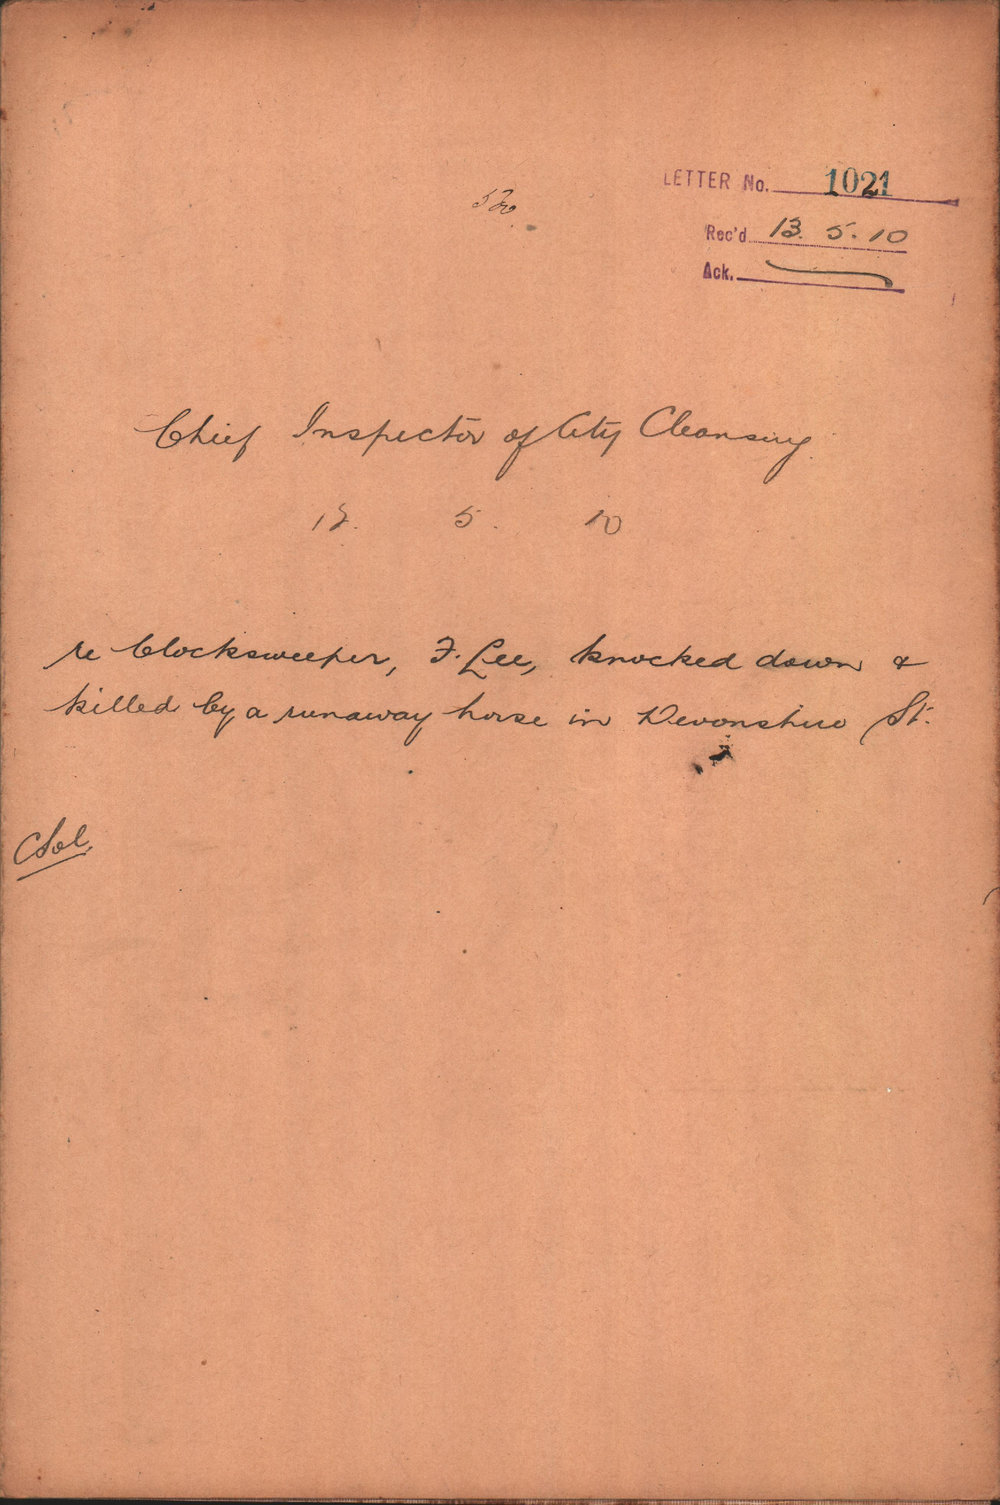 LETTER No. 1021
Rec'd 13. 5. 10
Ack.
Chief Inspector of City Cleansing
12. 5. 10
re Blocksweeper, F. Lee, knocked down &
killed by a runaway horse in Devonshire St.